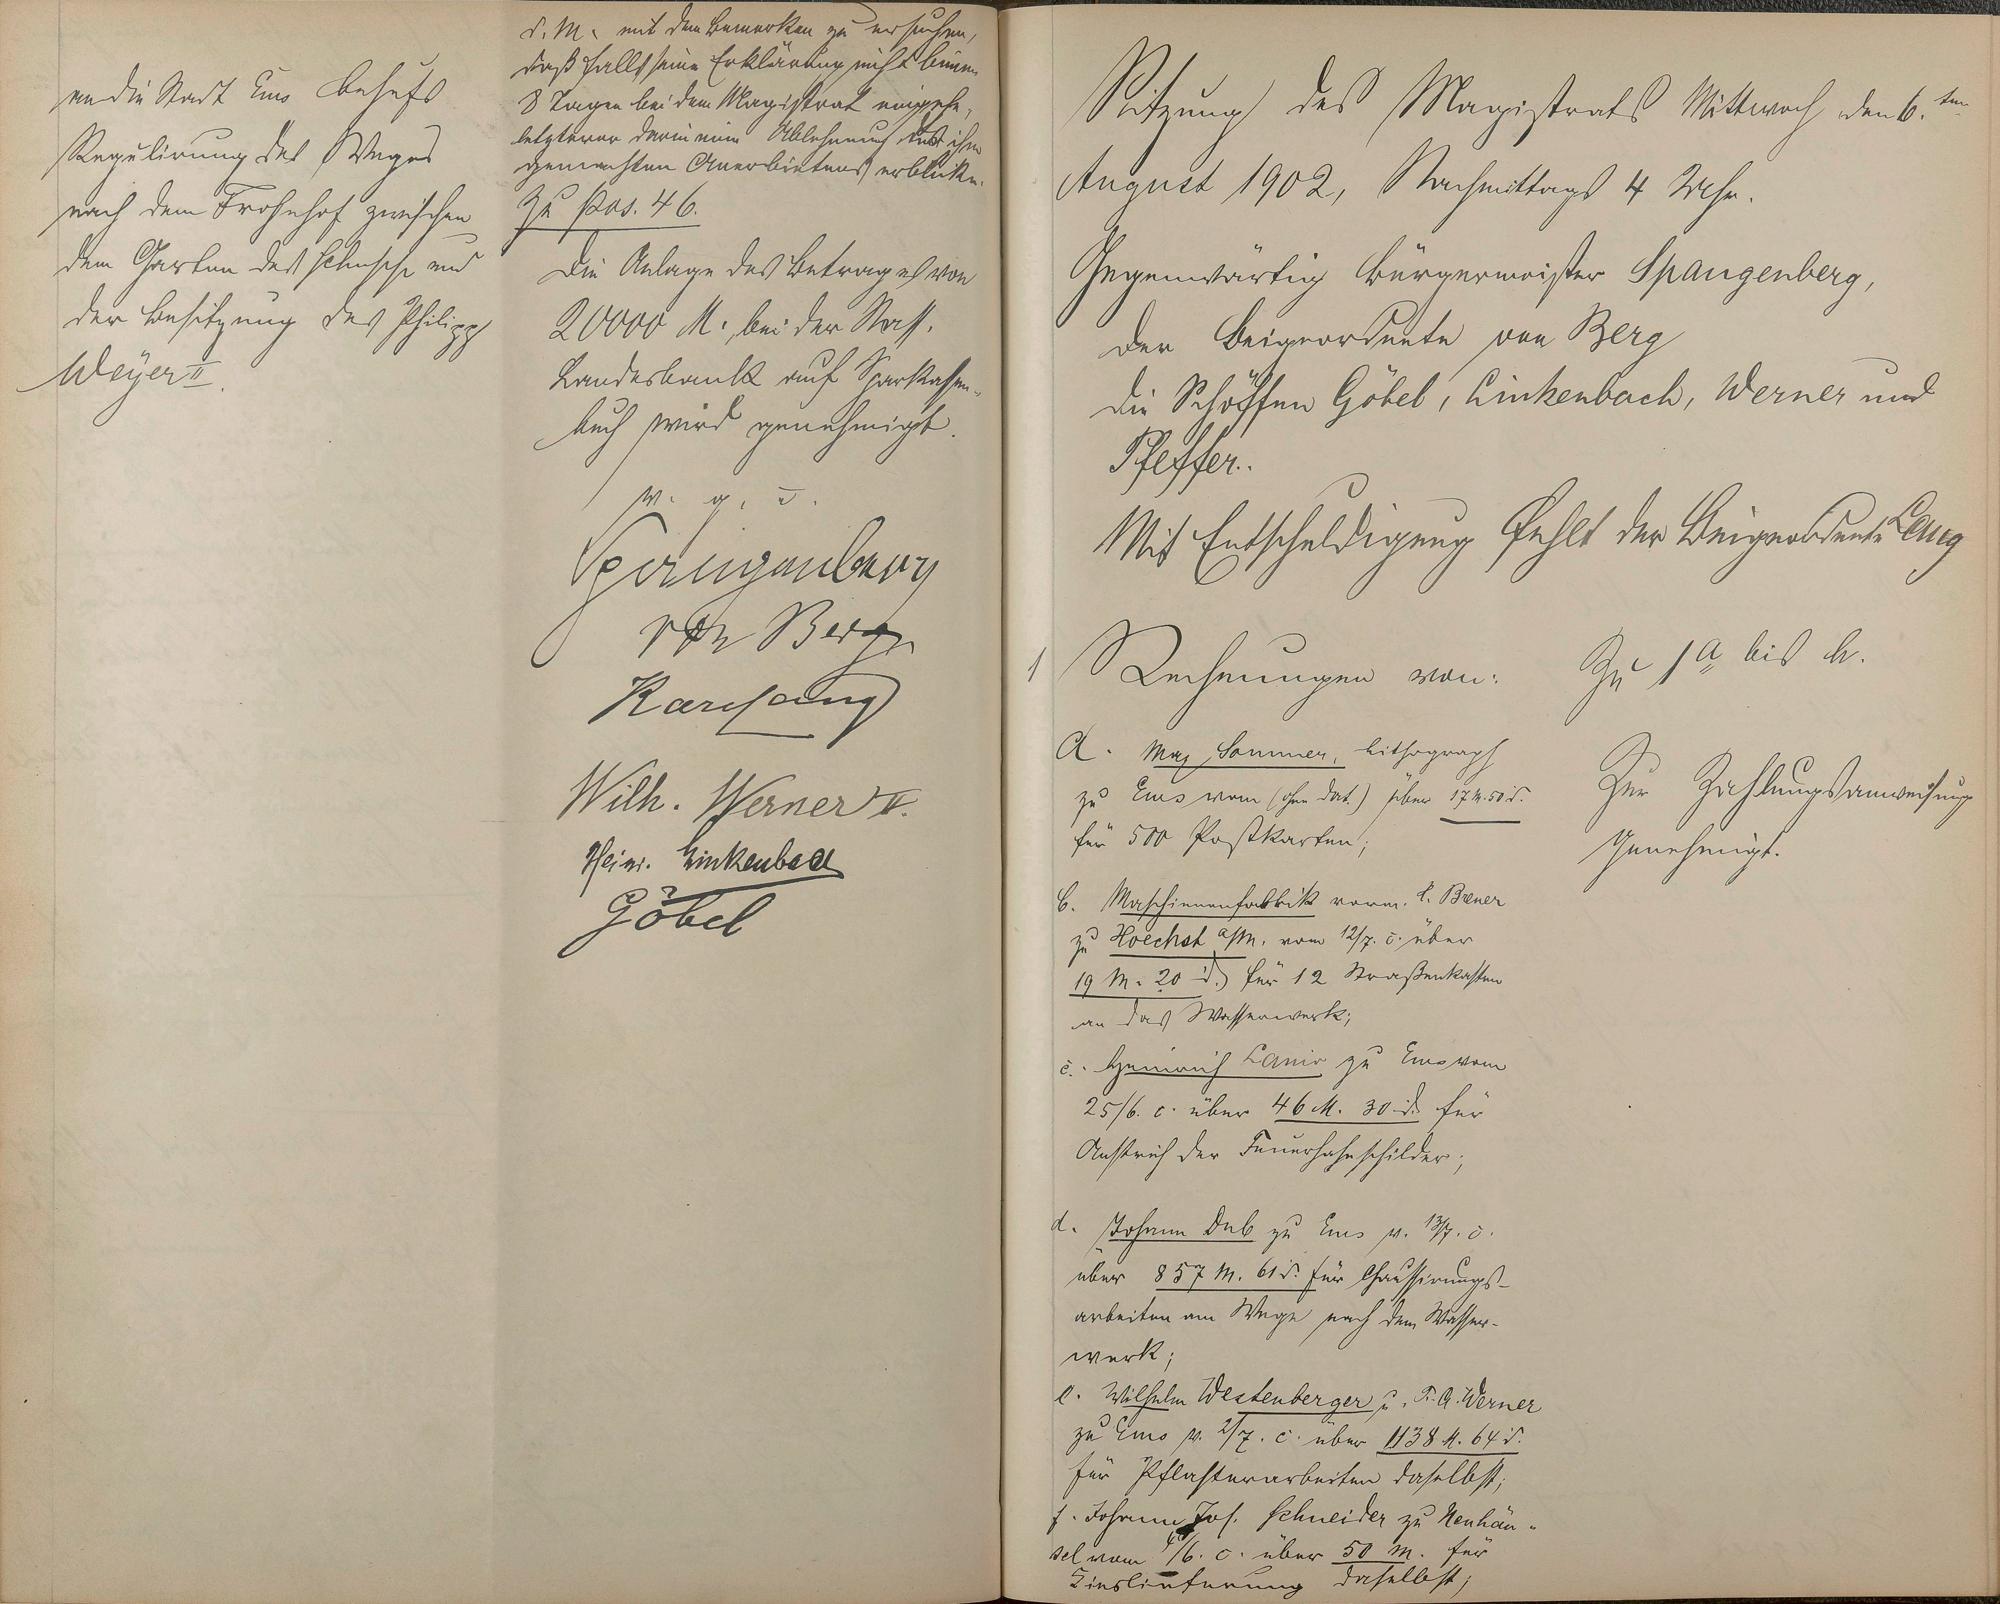 an die Stadt Ems behufs
Regulirung des Weges
nach dem Frohnhof zwischen
dem Garten des Schusche und
der Besitzung des Philipp
Weyer II.
d. M. mit dem Bemerken zu ersuchen,
daß falls seine Erklärung nicht binnen
8 Tagen bei dem Magistrat eingehe,
letzterer darin eine Ablehnung des ihm
gemachten Anerbietens erblicke.
Zu Pos. 46.
Die Anlage des Betrages von
20000 M. bei der Nass.
Landesbank auf Sparkassen-
buch wird genehmigt.
v. g. u.
Spangenberg
von Berg
Karl Lang
Wilh. Werner II.
Heinr. Linkenbach
Göbel
Sitzung des Magistrats Mittwoch den 6.ten
August 1902, Nachmittags 4 Uhr.
Gegenwärtig Bürgermeister Spangenberg,
der Beigeordnete von Berg
die Schöffen Göbel, Linkenbach, Werner und
Pfeffer.
Mit Entschuldigung fehlt der Beigeordnete Lang
1 Rechnungen von:
a. Max Sommer, Lithograph
zu Ems vom (ohne Dat.) über 17 M. 50 d.
für 500 Postkarten;
b. Maschinenfabrik vorm. Breuer
zu Hoechst a/M. vom 12/7. c. über
19 M. 20 d. für 12 Straßenkasten
an das Wasserwerk;
c. Heinrich Lanio zu Ems vom
25/6. c. über 46 M. 30 d. für
Anstrich der Feuerhahnschilder;
d. Johann Dub zu Ems v. 13/7. c.
über 857 M. 61 d. für Chaussirungs-
arbeiten am Wege nach dem Wasser-
werk;
e. Wilhelm Westenberger u. F. A. Werner
zu Ems v. 2/7. c. über 1138 M. 64 d.
für Pflasterarbeiten daselbst;
f. Johann Jos. Schneider zu Neuhäu-
sel vom /6. c. über 50 M. für
Kieslieferung daselbst;
Zu 1 a bis h.
Zur Zahlungsanweisung
Genehmigt.